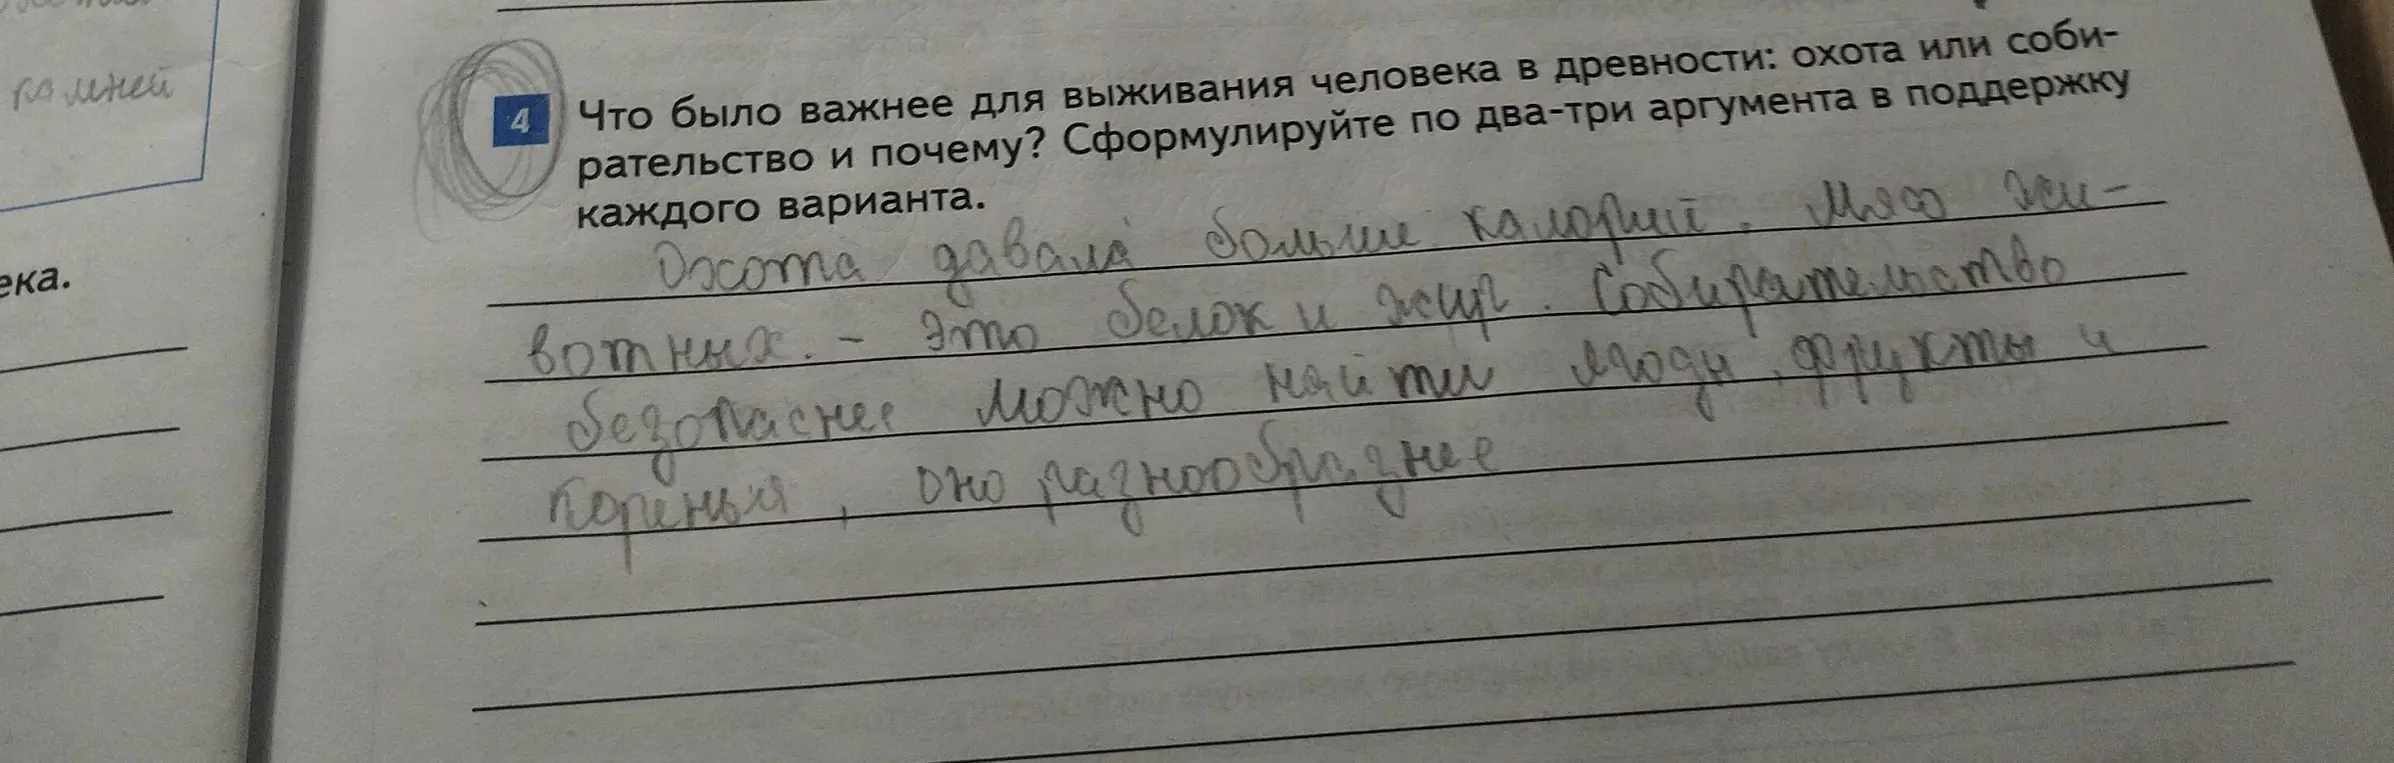 камней
ека.
4 Что было важнее для выживания человека в древности: охота или соби-
рательство и почему? Сформулируйте по два-три аргумента в поддержку
каждого варианта.
Охота давала больше калорий. Мясо жи-
вотных. - это белок и жир. Собирательство
безопаснее можно найти ягоды, фрукты и
коренья, оно разнообразнее